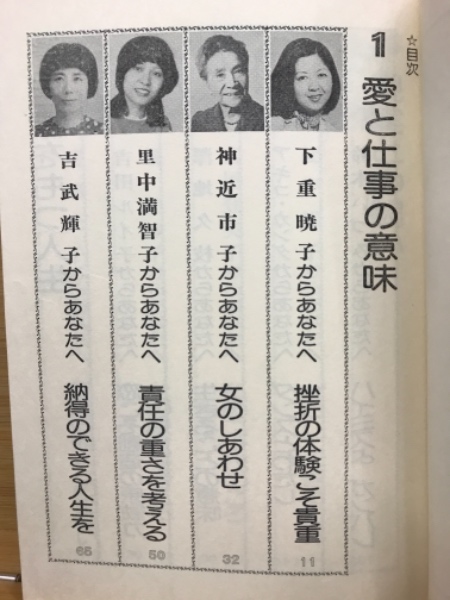 ☆目次
1 愛と仕事の意味
下重暁子からあなたへ 挫折の体験こそ貴重 11
神近市子からあなたへ 女のしあわせ 32
里中満智子からあなたへ 責任の重さを考える 50
吉武輝子からあなたへ 納得のできる人生を 65